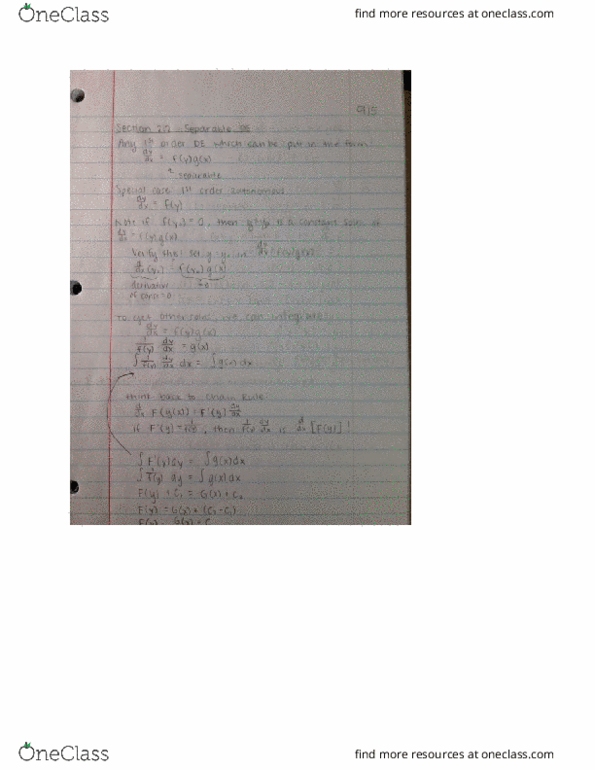 OneClass
find more resources at oneclass.com
9/15
Section 2.2 Separable DE
Any 1st order DE which can be put in the form
dy/dx = f(y)g(x)
separable
Special case 1st order autonomous
dy/dx = f(y)
Note if f(y₀) = 0, then y=y₀ is a constant soln of
dy/dx = f(y)g(x)
Verify this! Set y=y₀ in dy/dx = f(y)g(x)
d/dx (y₀) = f(y₀) g(x)
derivative =0
of const=0
To get other solns, we can integrate
dy/dx = f(y)g(x)
1/f(y) dy/dx = g(x)
∫ 1/f(y) dy/dx dx = ∫ g(x) dx
think back to Chain Rule
d/dx F(g(x)) = F'(y) dy/dx
if F'(y) = 1/f(y), then 1/f(y) dy/dx is d/dx [F(y)]!
∫ F'(y) dy = ∫ g(x) dx
∫ 1/f(y) dy = ∫ g(x) dx
F(y) + C₁ = G(x) + C₂
F(y) = G(x) + (C₂ - C₁)
F(y) = G(x) + C
OneClass
find more resources at oneclass.com